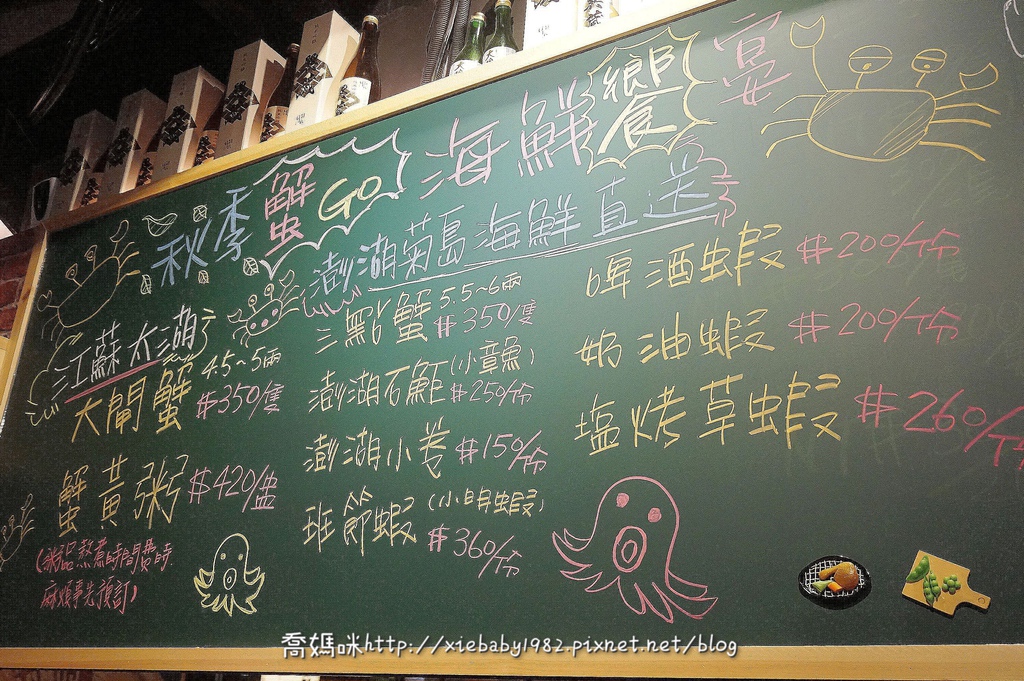 秋季蟹GO 海鮮饗宴
澎湖菊島海鮮直送
江蘇太湖
大閘蟹 4.5~5兩 #350/隻
蟹黃粥 #420/盅
(粥品熬煮時間費時.
麻煩事先預訂)
三點蟹 5.5~6兩 #350/隻
澎湖石鮔(小章魚) #250/份
澎湖小卷 #150/份
班節蝦(小明蝦) #360/份
啤酒蝦 #200/份
奶油蝦 #200/份
塩烤草蝦 #260/份
喬媽咪http://xiebaby1982.pixnet.net/blog